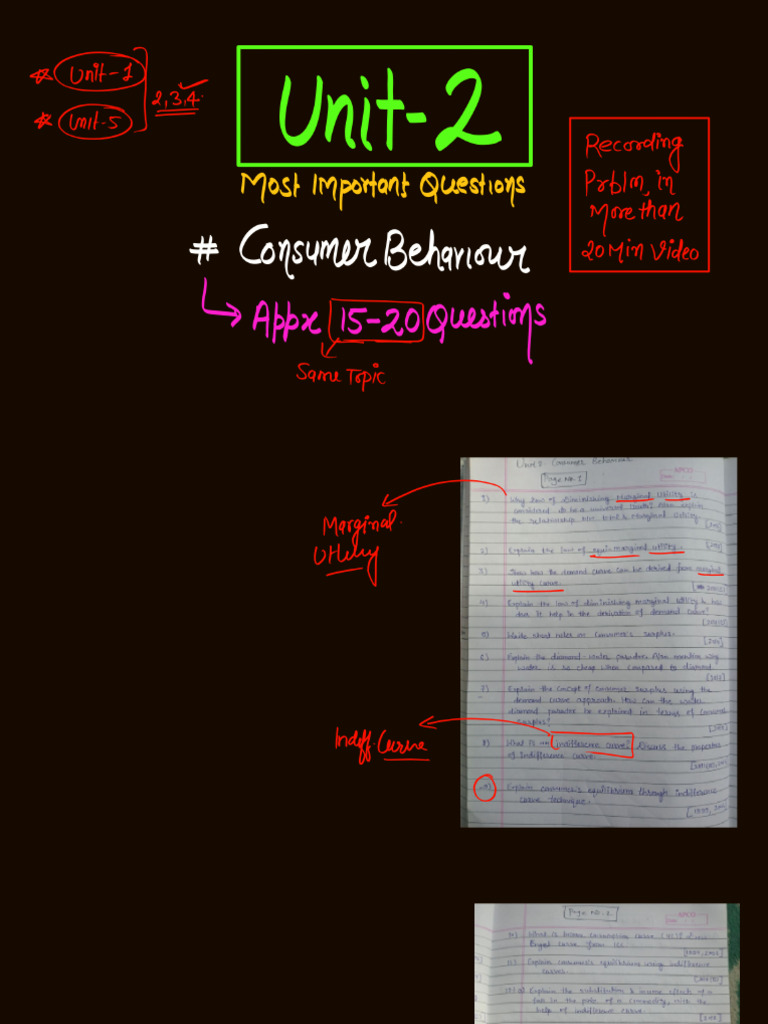 Unit-1
Unit-5
2,3,4.
Unit-2
Most Important Questions
# Consumer Behaviour
Appx 15-20 Questions
Same Topic
Recording
Prblm, in
More than
20 Min Video
Marginal.
Utility
Indiff. Curve
Unit 2 Consumer Behaviour
Page No. 1
1) Why law of diminishing Marginal Utility is
considered to be a universal
the relationship marginal utility
2) Explain the law of equi-marginal utility.
3) Show how the demand curve can be derived from marginal
utility curve.
4) Explain the law of diminishing marginal utility & how
does it help in the derivation of demand curve?
5) Write short notes on Consumer's surplus.
6) Explain the diamond-water paradox. Also mention why
water is so cheap when compared to diamond
7) Explain the concept of consumer surplus using the
demand curve approach. How can the water
diamond paradox be explained in terms of consumer
surplus?
8) What is an indifference curve? Discuss the properties
of indifference curve.
9) Explain consumer's equilibrium through indifference
curve technique.
Page No. 2
10) What is Income consumption curve
Engel curve from ICC.
11) Explain consumer's equilibrium using indifference
curves.
Explain the substitution & income effects of a
in the price of a commodity, with the
help of indifference curve.